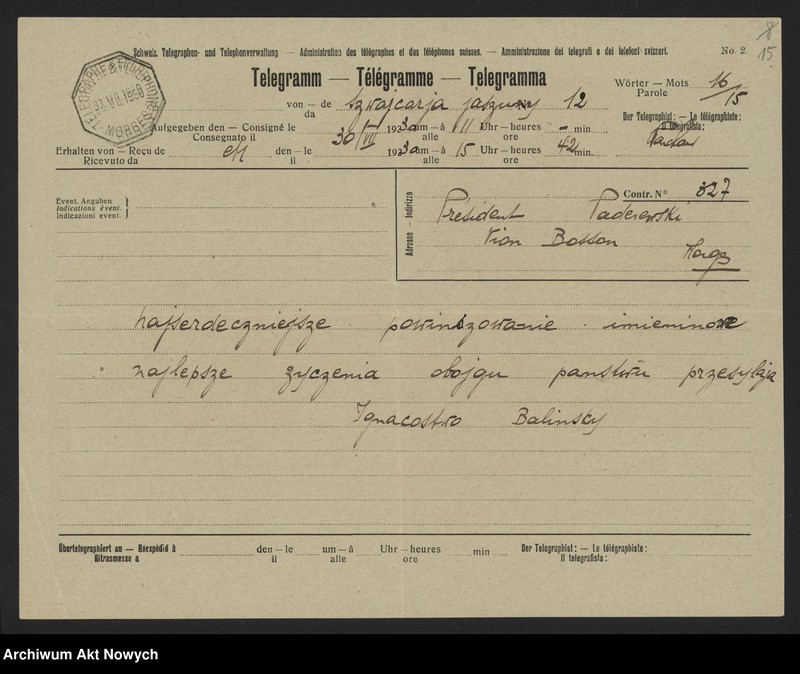 8
15
Schweiz. Telegraphen- und Telephonverwaltung — Administration des télégraphes et des téléphones suisses. — Amministrazione dei telegrafi e dei telefoni svizzeri. No. 2
Telegramm — Télégramme — Telegramma
Wörter — Mots 16/15
Parole
TELEGRAPHE & TELEPHONE
MORGES
von — de Szwajcarja jaszuny 12
da
Der Telegraphist: — Le télégraphiste:
Il telegrafista:
Aufgegeben den — Consigné le 30/VII 1930 um — à 11 Uhr — heures — min
Consegnato il alle ore
Erhalten von — Reçu de den — le 1930 um — à 15 Uhr — heures 42 min.
Ricevuto da il alle ore
Event. Angaben
Indications évent.
Indicazioni event.
Adresse — Indirizzo
Contr. No 327
President Paderewski
Rion Bosson
Morges
najserdeczniejsze powinszowanie imieninowe
najlepsze zyczenia obojgu panstwu przesylaja
Ignacostwo Balinscy
Übertelegraphiert an — Réexpédié à den — le um — à Uhr — heures min Der Telegraphist: — Le télégraphiste:
Ritrasmesso a il alle ore Il telegrafista:
Archiwum Akt Nowych